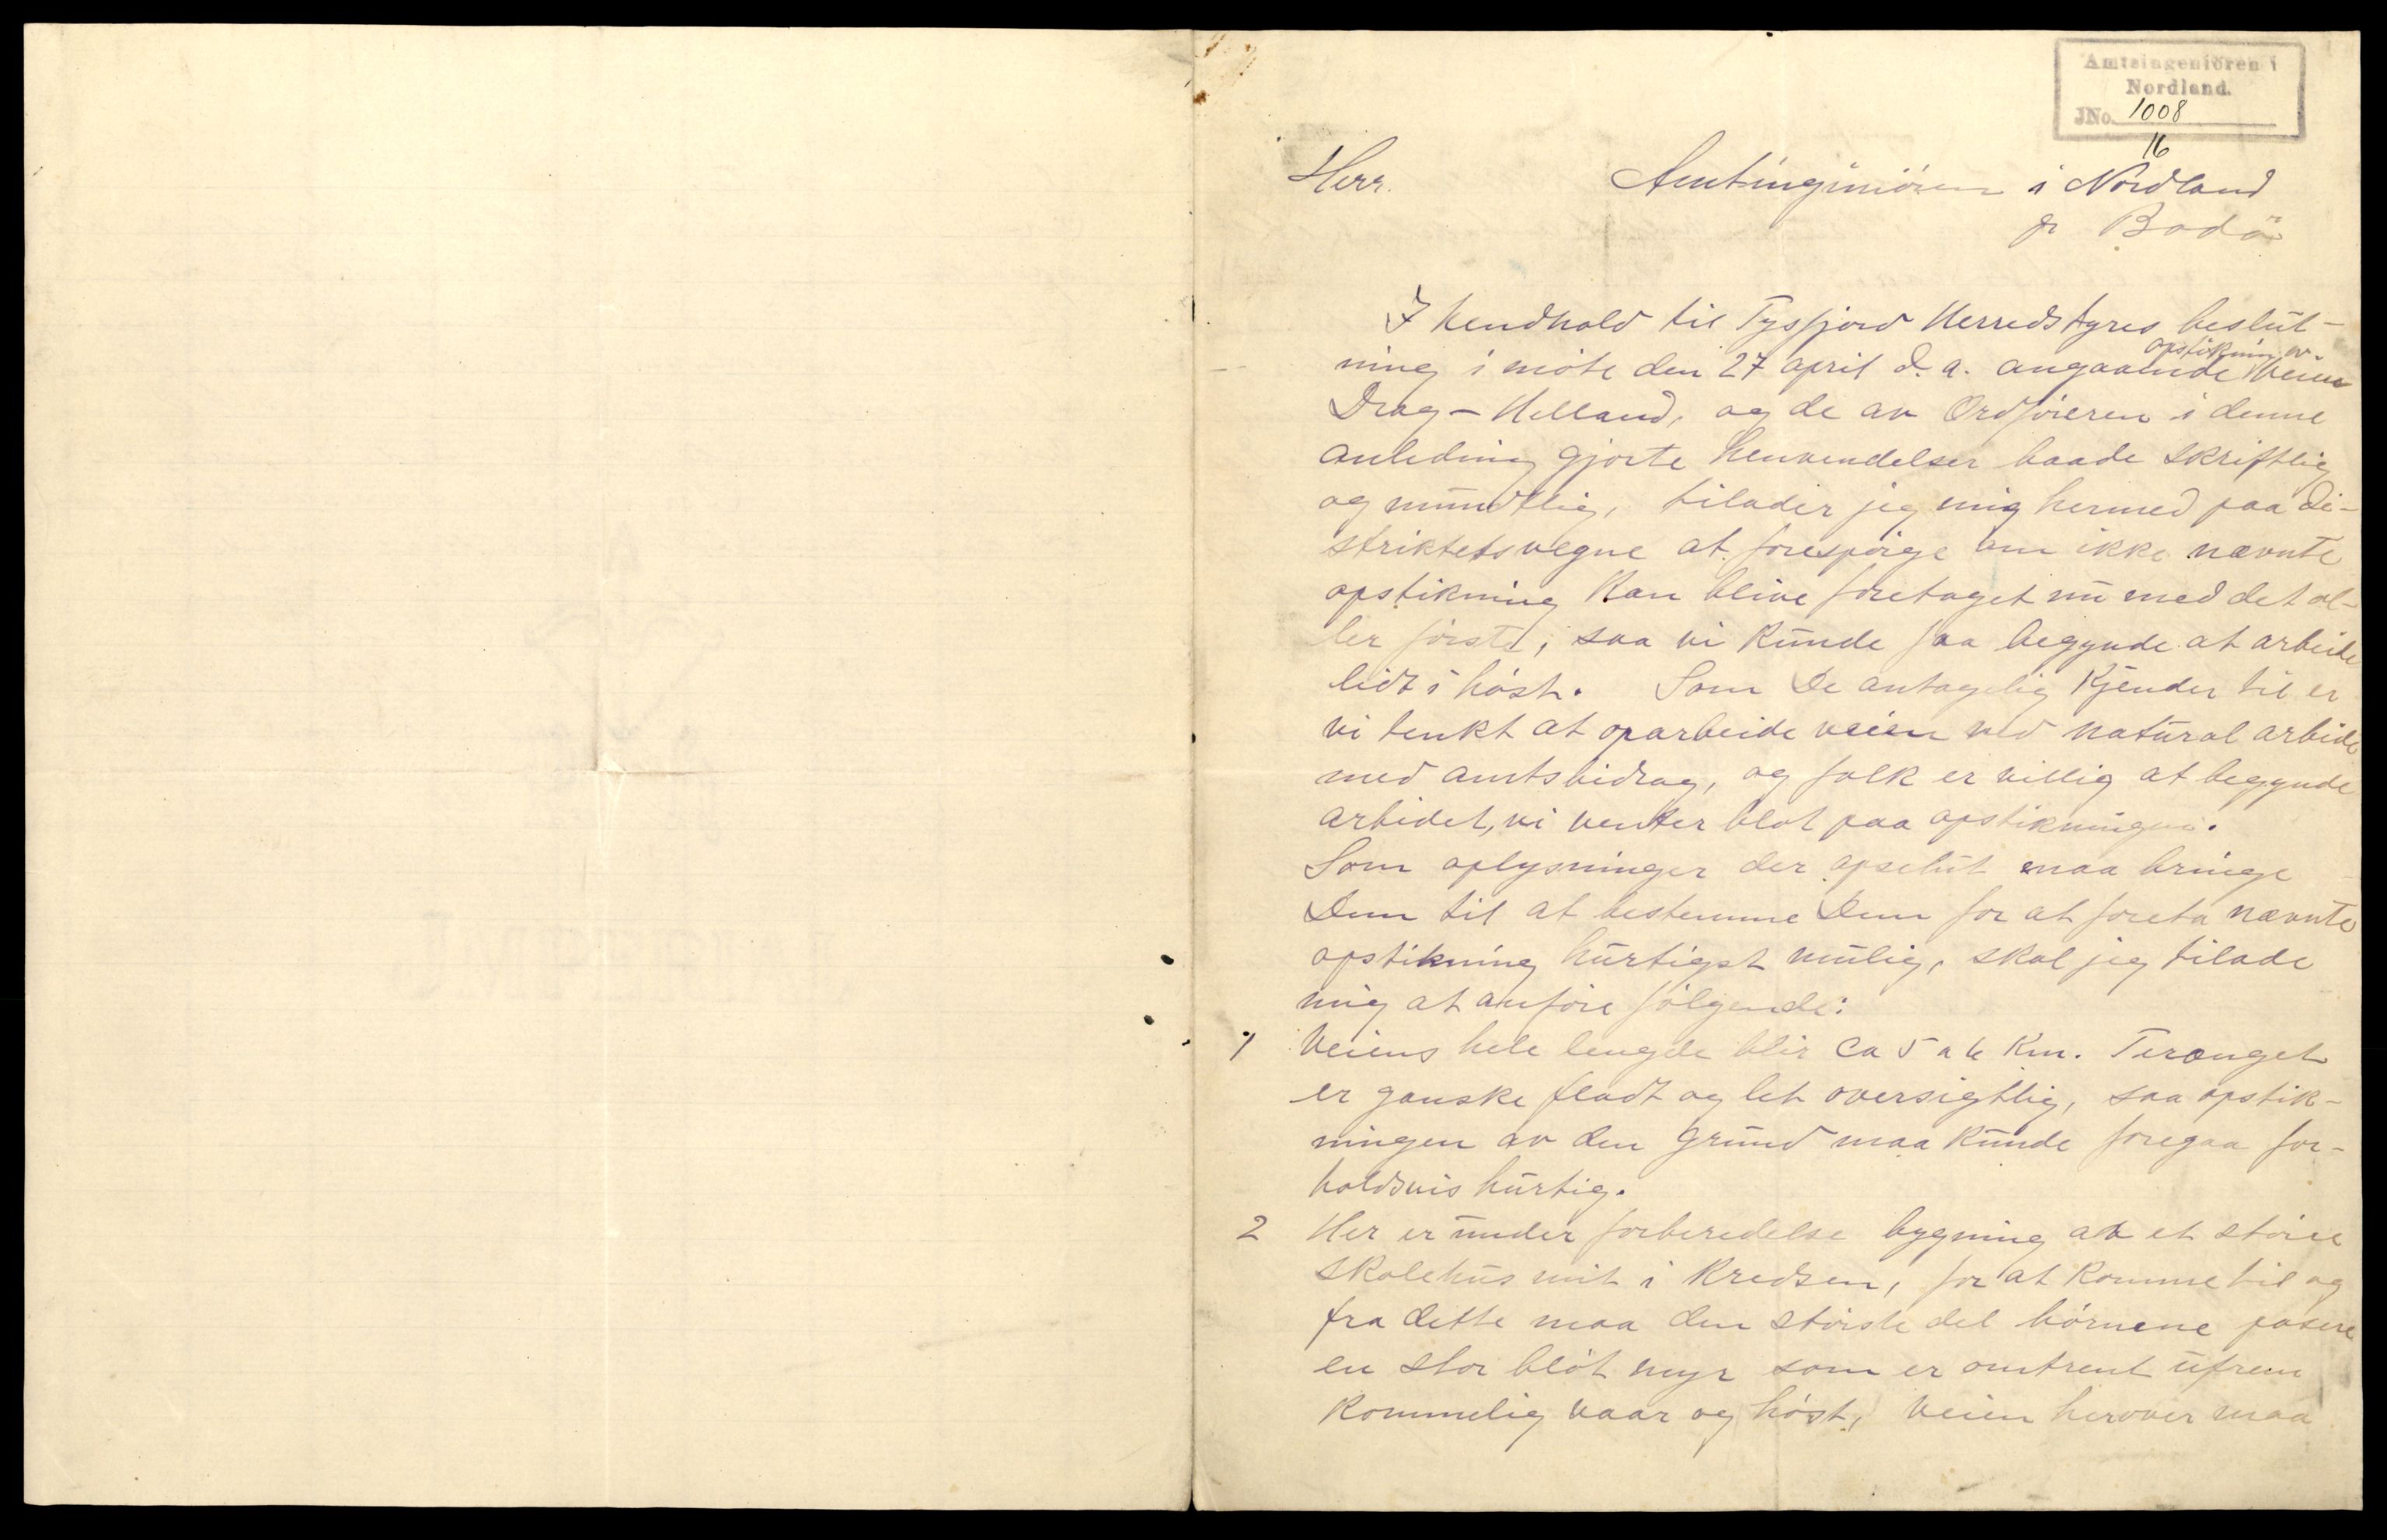 Amtsingeniören i
Nordland.
JNo. 1008
16
Herr. Amtingeniören i Nordland
pr Bodö
I hendhold til Tysfjord Herredstyres beslut-
opstikning av
ning i möte den 27 april d. a. angaaende veien
Drag – Helland, og de av Ordföreren i denne
anledning gjorte henvendelser baade skriftlig
og mundtlig, tilader jeg mig hermed paa di-
striktets vegne at forespörge om ikke nævnte
opstikning kan blive foretaget nu med det al-
ler förste, saa vi kunde faa begynde at arbeide
lidt i höst. Som De antagelig kjender til er
vi tenkt at oparbeide veien ved naturalarbide
med amtsbidrag, og folk er villig at begynde
arbidet, vi venter blot paa opstikningen.
Som oplysninger der apselut maa bringe
Dem til at bestemme Dem for at foreta nævnte
opstikning hurtigst mulig, skal jeg tilade
mig at anföre fölgende:
1 Veiens hele lengde blir ca 5 a 6 km. Terænget
er ganske fladt og let oversigtlig, saa opstik-
ningen av den grund maa kunde foregaa for-
holdsvis hurtig.
2 Her er under forberedelse bygning av et störe
skolehus mit i kredsen, for at komme til og
fra dette maa den störste del börnene pasere
en stor blöt myr som er omtrent ufrem
kommelig vaar og höst, veien herover maa